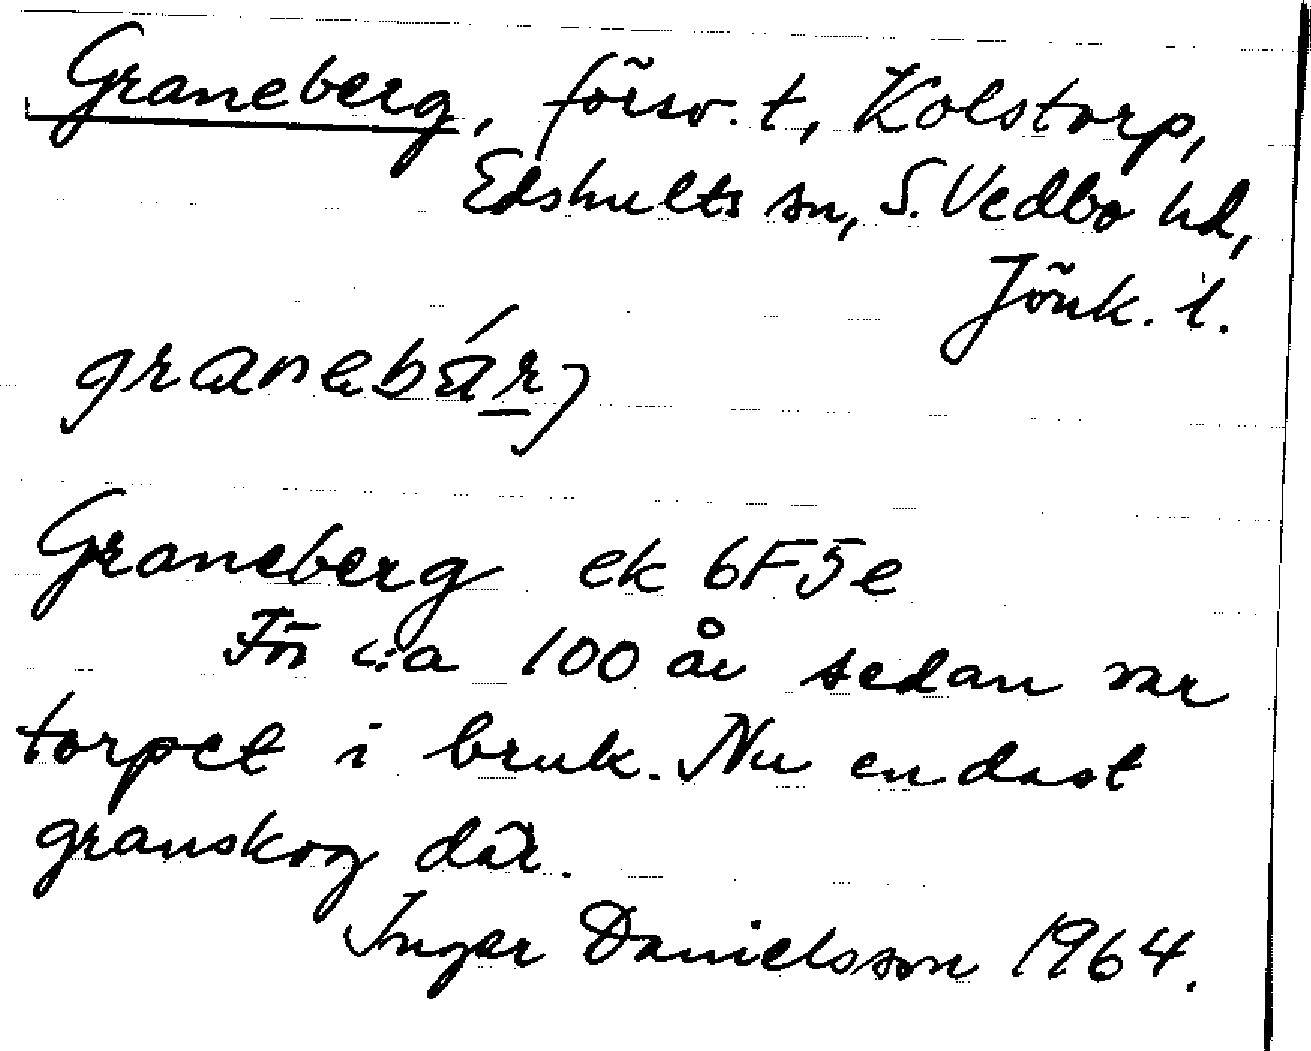 Graneberg, försv. t, Kolstorp,
Edshults sn, S. Vedbo hd,
Jönk. l.
granebär̲j
Graneberg ek 6F5e
För c:a 100 år sedan var
torpet i bruk. Nu endast
granskog där.
Inger Danielsson 1964.